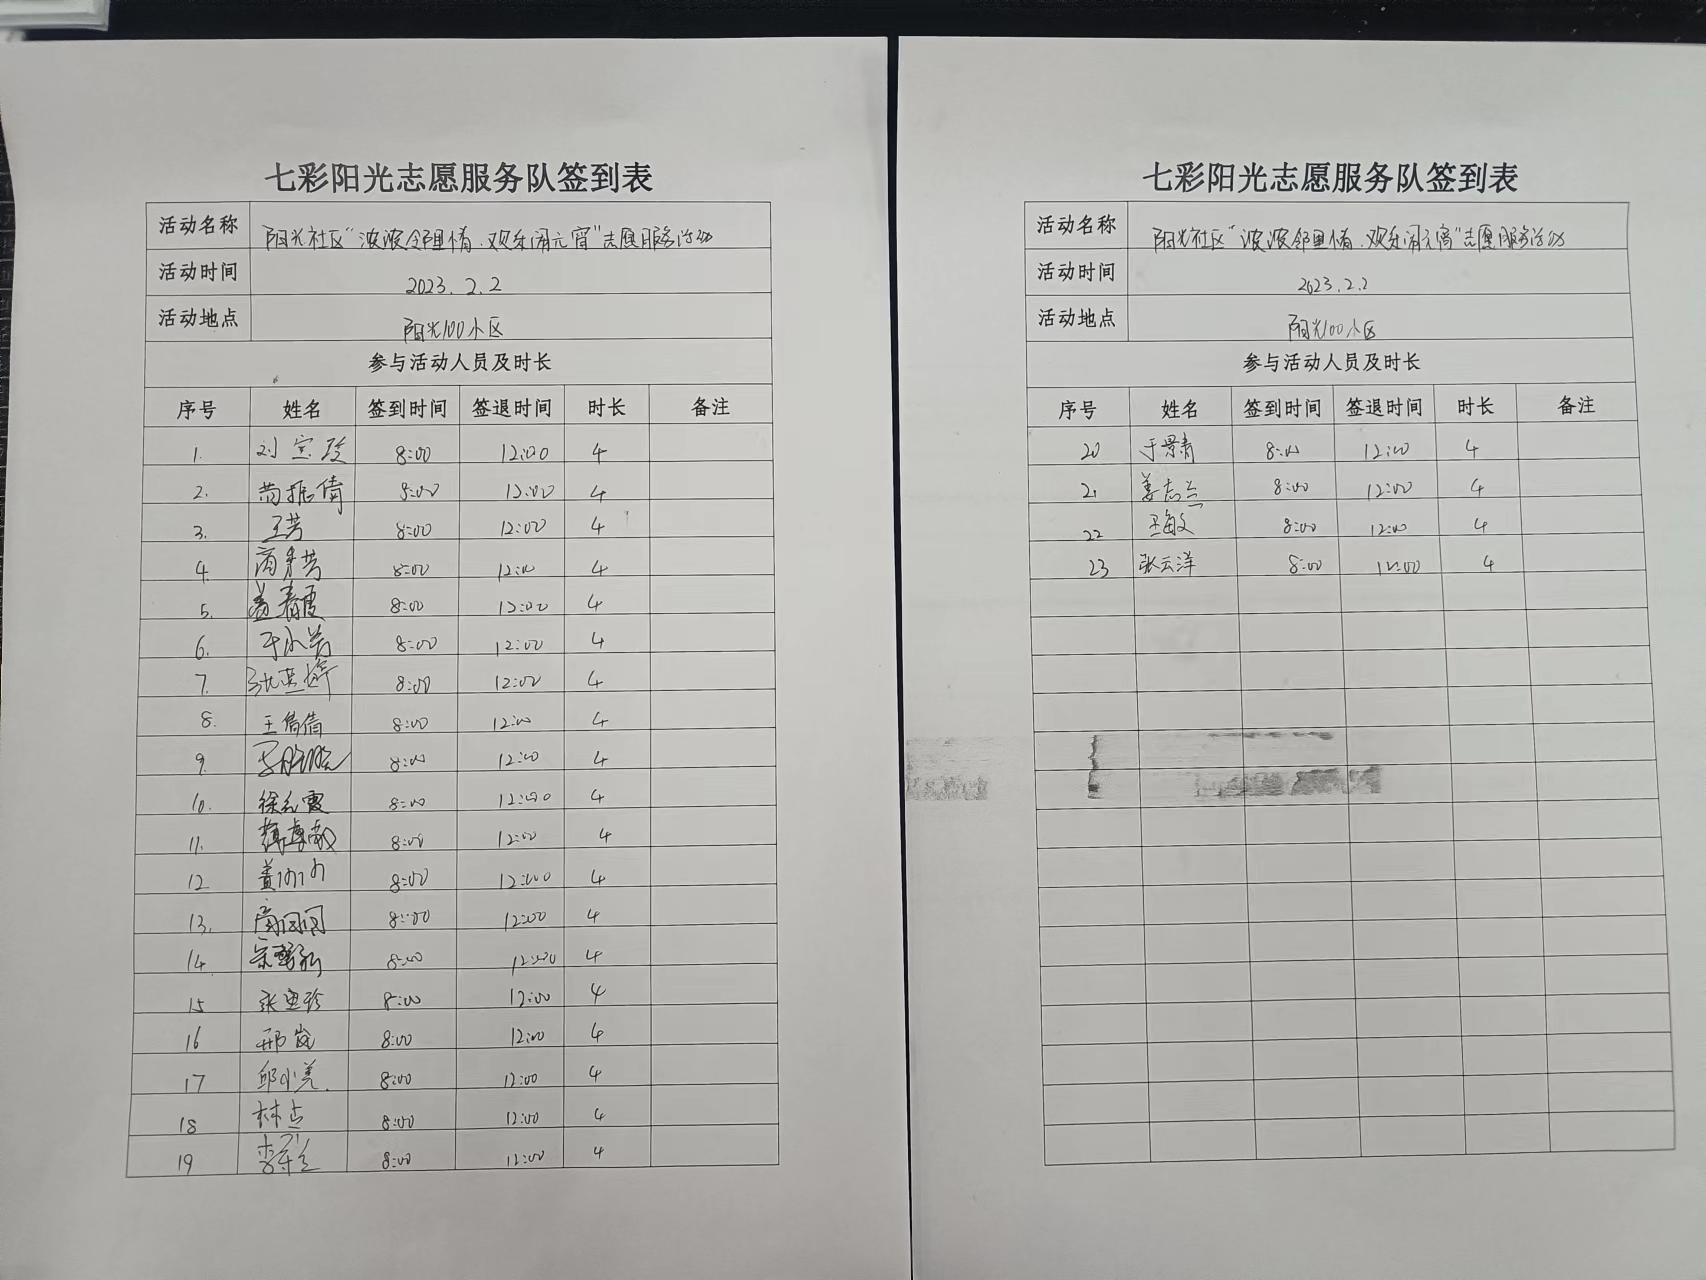 七彩阳光志愿服务队签到表
活动名称 阳光社区"浓浓邻里情.欢乐闹元宵"志愿服务活动
活动时间 2023.2.2
活动地点 阳光100小区
参与活动人员及时长
序号 姓名 签到时间 签退时间 时长 备注
1. 刘宝珍 8:00 12:00 4
2. 8:00 12:00 4
3. 王芳 8:00 12:00 4
4. 8:00 12:00 4
5. 8:00 12:00 4
6. 8:00 12:00 4
7. 8:00 12:00 4
8. 王倩倩 8:00 12:00 4
9. 8:00 12:00 4
10. 8:00 12:00 4
11. 8:00 12:00 4
12 8:00 12:00 4
13. 8:00 12:00 4
14 8:00 12:00 4
15 8:00 12:00 4
16 邢岚 8:00 12:00 4
17 邱小亮 8:00 12:00 4
18 8:00 12:00 4
19 8:00 12:00 4
七彩阳光志愿服务队签到表
活动名称 阳光社区"浓浓邻里情.欢乐闹元宵"志愿服务活动
活动时间 2023.2.2
活动地点 阳光100小区
参与活动人员及时长
序号 姓名 签到时间 签退时间 时长 备注
20 于景青 8:00 12:00 4
21 姜志兰 8:00 12:00 4
22 王敏 8:00 12:00 4
23 张云洋 8:00 12:00 4